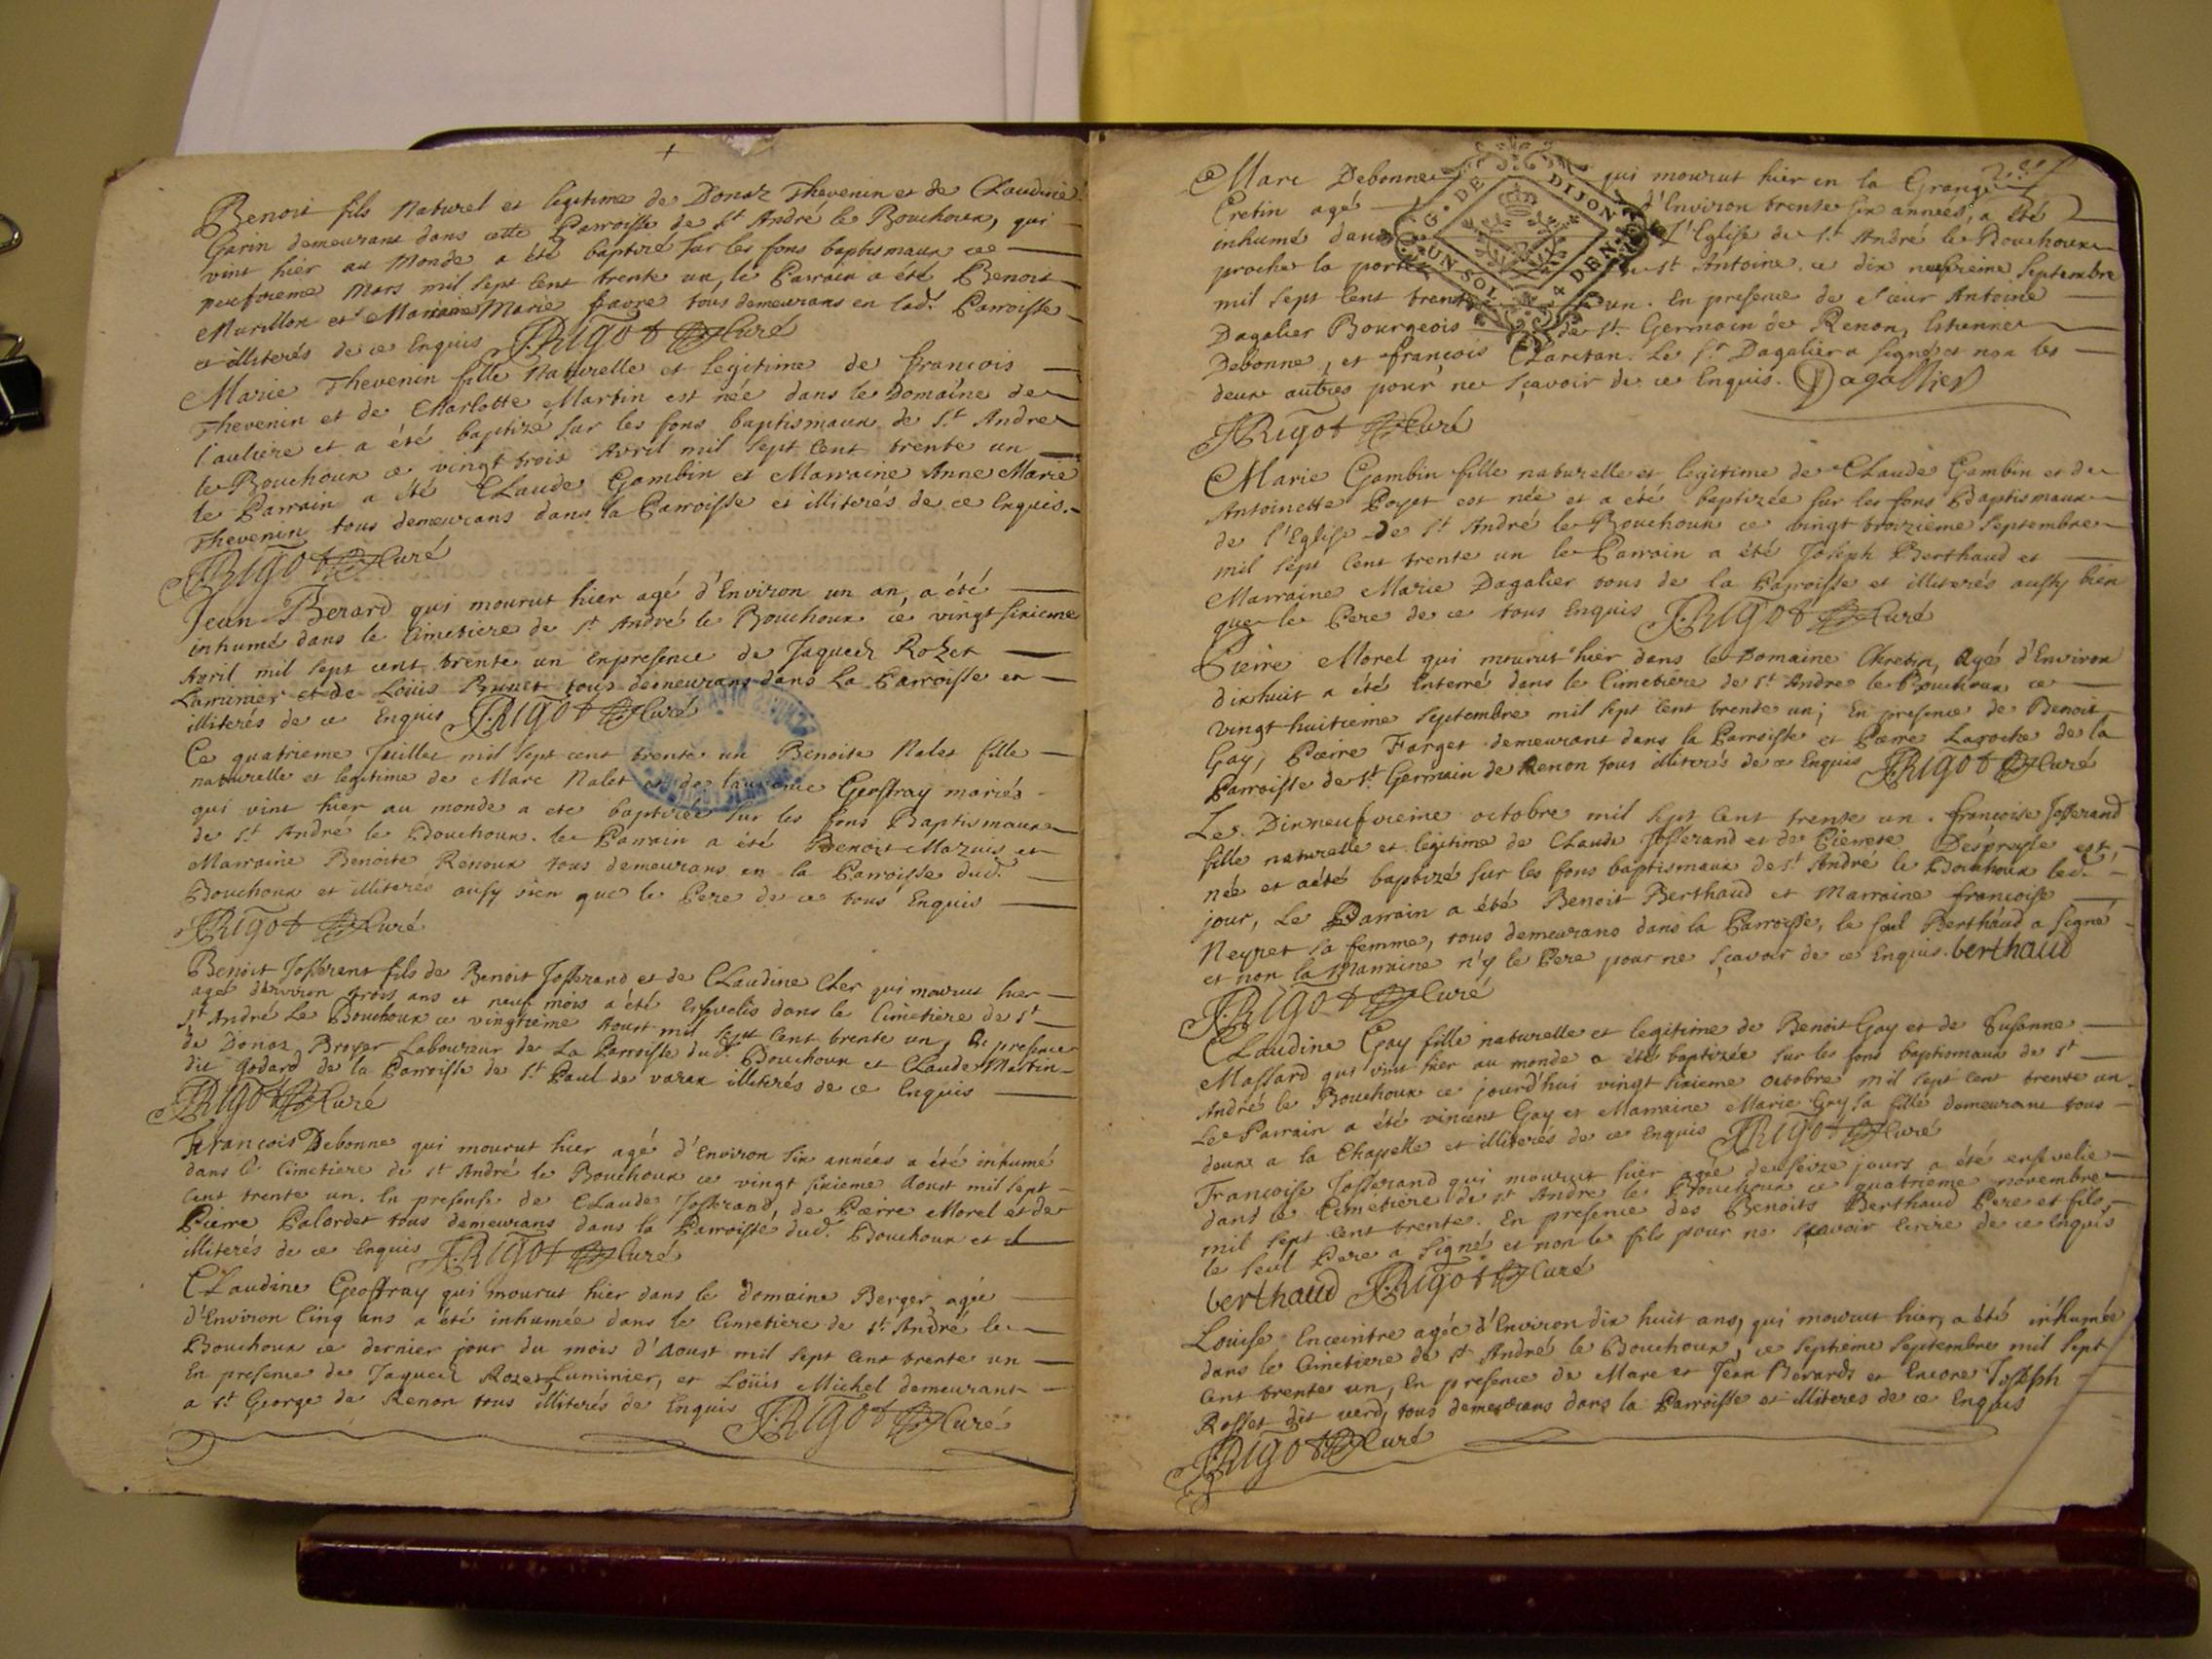 Benoit fils Naturel et legitime de Donat Thevenin et de Claudine
Garin demeurant dans cette Parroisse de St André le Bouchoux, qui
vint hier au Monde a été baptizé sur les fons baptismaux ce
neufvieme Mars mil sept cent trente un, le Parrain a été Benoit
Murillon et Marraine Marie favre tous demeurans en lad. Parroisse
et illiterés de ce Enquis JRigot Curé
Marie Thevenin fille Naturelle et Legitime de françois
Thevenin et de Charlotte Martin est née dans le Domaine de
l'auliere et a été baptizé sur les fons baptismaux de St André
le Bouchoux ce vingt trois Avril mil sept Cent trente un
le Parrain a été Claude Gambin et Marraine Anne Marie
Thevenin tous demeurans dans la Parroisse et illiterés de ce Enquis.
JRigot Curé
Jean Berard qui mourut hier agé d'Environ un an, a été
inhumé dans le Cimetiere de St André le Bouchoux ce vingt sixieme
Avril mil sept cent trente un En presence de Jaques Rozet
Luminier et de Loüis Brunet tous demeurans dans La Parroisse et
illiterés de ce Enquis JRigot Curé
Ce quatrieme Juillet mil sept cent trente un Benoite Nalet fille
naturelle et legitime de Marc Nalet et de Geoffray mariés
qui vint hier au monde a ete baptizée sur les fons Baptismaux
de St André le Bouchoux. le Parrain a été Benoit Mazuis et
Marraine Benoite Renoux tous demeurans en la Parroisse dud.
Bouchoux et illiterés aussy bien que le Pere de ce tous Enquis
JRigot Curé
Benoit Josserant fils de Benoit Josserand et de Claudine Cher qui mourut hier
agé d'environ trois ans et neuf mois a été ensevelis dans le Cimetiere de St
St André Le Bouchoux ce vingtieme Aoust mil sept Cent trente un, En presence
de Donat Broyer Laboureur de La Parroisse dud. Bouchoux et Claude Martin
dit Godard de la Parroisse de St Paul de varax illiterés de ce Enquis
JRigot Curé
François Debonne qui mourut hier agé d'Environ six années a été inhumé
dans le Cimetiere de St André le Bouchoux ce vingt sixieme Aoust mil sept
Cent trente un. En presense de Claude Josserand, de Pierre Morel et de
Pierre Palordet tous demeurans dans la Parroisse dud. Bouchoux et
illiterés de ce Enquis JRigot Curé
Claudine Geoffray qui mourut hier dans le Domaine Berger agée
d'Environ Cinq ans a été inhumée dans le Cimetiere de St André le
Bouchoux ce dernier jour du mois d'Aoust mil sept Cent trente un
En presence de Jaques Rozet Luminier, et Loüis Michel demeurant
a St George de Renon tous illiterés de Enquis JRigot Curé
Marc Debonne qui mourut hier en la Grange
Cretin agé d'Environ trente six années, a été
inhumé dans L'Eglise de St André le Bouchoux
proche la porte de St Antoine. ce dix neufvieme Septembre
mil sept Cent trente un. En presence de sieur Antoine
Dagalier Bourgeois de St Germain de Renon, Estienne
Debonne, et françois Claretan. Le Sr Dagalier a signé et non les
deux autres pour ne sçavoir de ce Enquis. Dagallier
G. DE DIJON
UN SOL 4 DEN.
JRigot Curé
Marie Gambin fille naturelle et legitime de Claude Gambin et de
Antoinette Poyet est née et a été baptizée sur les fons Baptismaux
de l'Eglise de St André le Bouchoux ce vingt troizieme Septembre
mil sept Cent trente un le Parrain a été Joseph Berthaud et
Marraine Marie Dagalier tous de la Parroisse et illiterés aussy bien
que le Pere de ce tous Enquis JRigot Curé
Pierre Morel qui mourut hier dans le Domaine Chretin, Agé d'Environ
dixhuit a été Enterré dans le Cimetiere de St André le Bouchoux ce
vingt huitieme Septembre mil sept Cent trente un; En presence de Benoit
Gay, Pierre Farget demeurant dans la Parroisse et Pierre Laroche de la
Parroisse de St Germain de Renon tous illiterés de ce Enquis JRigot Curé
Le Dixneufvieme octobre mil sept Cent trente un. françoise Josserand
fille naturelle et legitime de Claude Josserand et de Pierrete Despreyle est
née et a été baptizé sur les fons baptismaux de St André le Bouchoux led.
jour, Le Parrain a été Benoit Berthaud et Marraine françoise
Neyret sa femme, tous demeurans dans la Parroisse, le seul Berthaud a signé
et non la Marraine n'y le Pere pour ne sçavoir de ce Enquis. berthaud
JRigot Curé
Claudine Gay fille naturelle et legitime de Benoit Gay et de Susanne
Massard qui vint hier au monde a été baptizée sur les fons baptismaux de St
André le Bouchoux ce jourd'hui vingt sixieme Octobre mil sept Cent trente un.
Le Parrain a été vincent Gay et Marraine Marie Gay sa fille demeurans tous
deux a la Chapelle et illiterés de ce Enquis JRigot Curé
Françoise Josserand qui mourut hier agée de seize jours a été ensevelie
dans le Cimetiere de St André le Bouchoux ce quatrieme novembre
mil sept Cent trente. En presence des Benoits Berthaud Pere et fils,
le seul Pere a signé et non le fils pour ne sçavoir Ecrire de ce Enquis
berthaud JRigot Curé
Louise Enceintre agée d'Environ dix huit ans, qui mourut hier, a été inhumée
dans le Cimetiere de St André le Bouchoux, ce Septieme Septembre mil sept
Cent trente un, En presence de Marc et Jean Berards et Encore Joseph
Rosset dit verd, tous demeurans dans la Parroisse et illiteres de ce Enquis
JRigot Curé